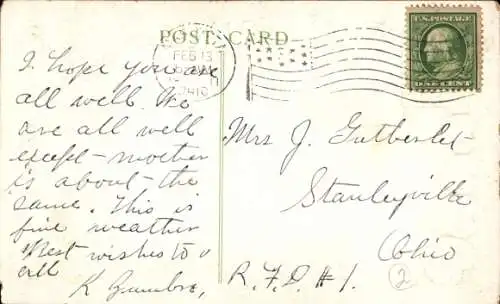 POST CARD
FEB 13
U.S. POSTAGE
ONE CENT
I hope you are
all well. We
are all well
except - mother
is about - the
same. This is
fine weather
Best wishes to
all
K
Mrs J. Gutberlet
Stanleyville
Ohio
R.F.D. #1.
2